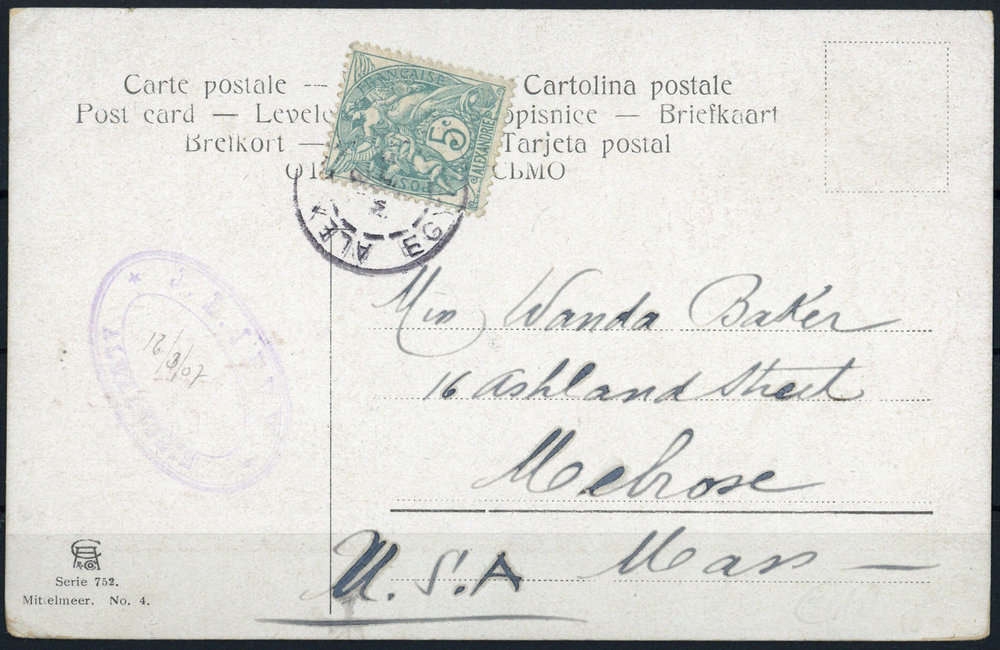 Carte postale — Cartolina postale
Post card — Levele opisnice — Briefkaart
Brefkort — Tarjeta postal
СЬМО
FRANÇAISE
5c
POSTES
ALEXANDRIE
ALEX EGY
Miss Wanda Baker
16 Ashland Street
Melrose
Mass —
U.S.A
21/8/07
Serie 752.
Mittelmeer. No. 4.